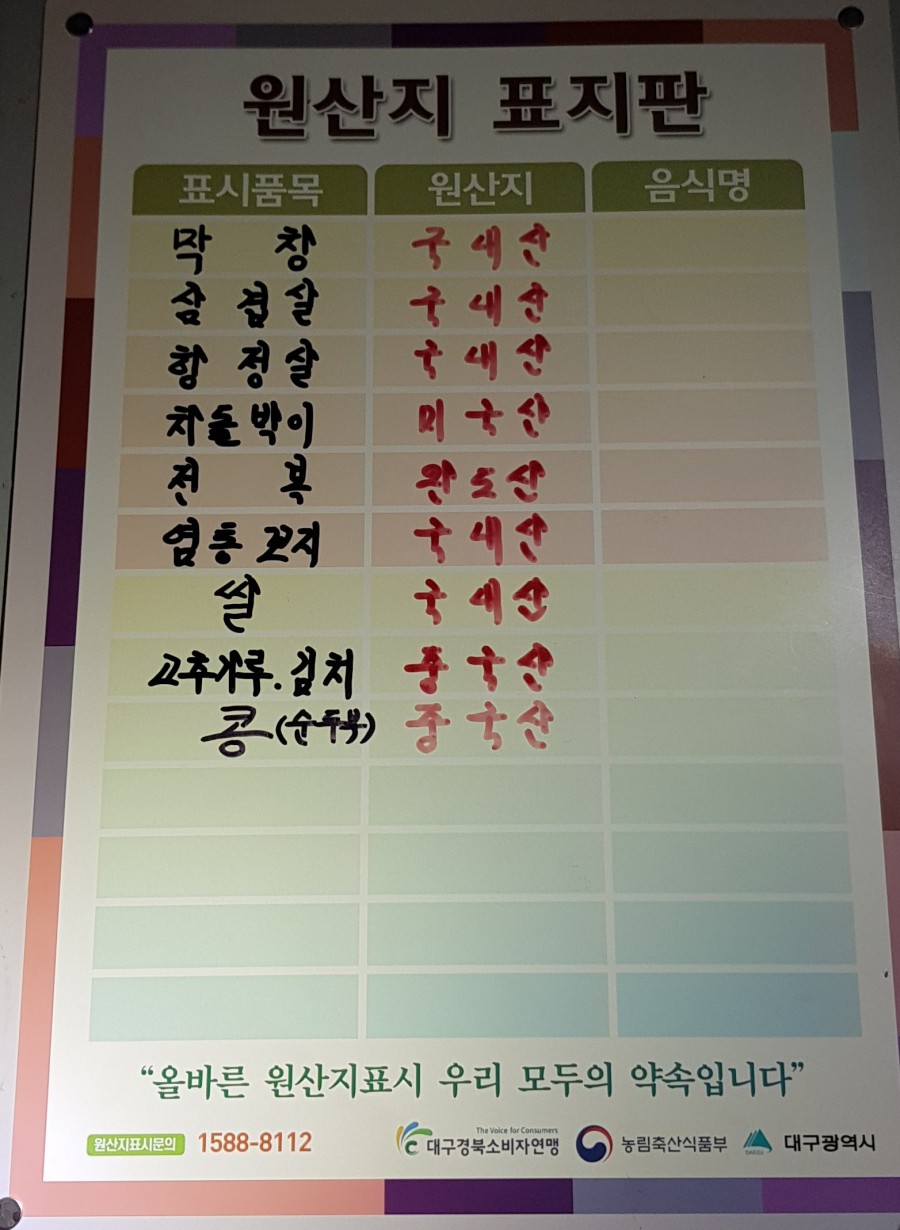 원산지 표지판
표시품목 원산지 음식명
막창 국내산
삼겹살 국내산
항정살 국내산
차돌박이 미국산
전복 완도산
염통꼬지 국내산
쌀 국내산
고추가루.김치 중국산
콩(순두부) 중국산
“올바른 원산지표시 우리 모두의 약속입니다”
원산지표시문의 1588-8112 The Voice for Consumers 대구경북소비자연맹 농림축산식품부 대구광역시